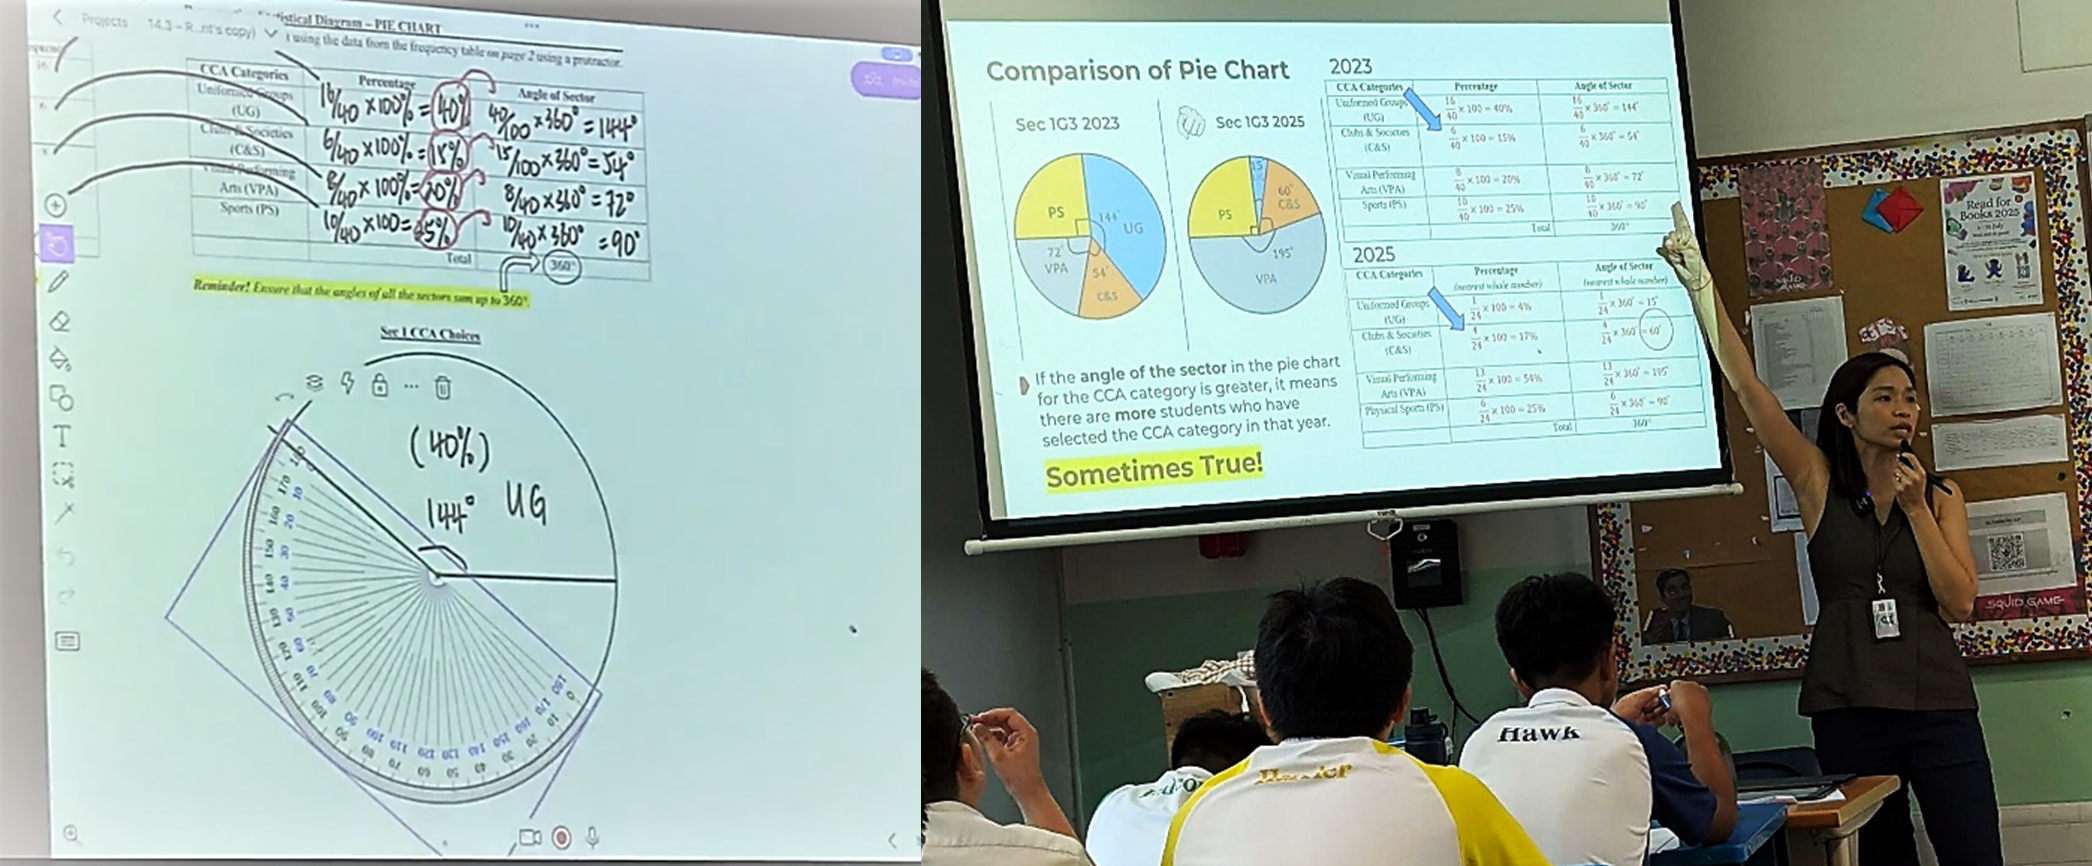 Projects
14.3 - R...nt's copy)
istical Diagram – PIE CHART
using the data from the frequency table on page 2 using a protractor.
CCA Categories
Percentage
Angle of Sector
Uniformed Groups
(UG)
16/40 ×100% = 40%
40/100 ×360° = 144°
Clubs & Societies
(C&S)
6/40 ×100% = 15%
15/100 ×360° = 54°
Visual Performing
Arts (VPA)
8/40 × 100% = 20%
8/40 ×360° = 72°
Sports (PS)
10/40 ×100 = 25%
10/40 ×360° = 90°
Total
360°
Reminder! Ensure that the angles of all the sectors sum up to 360°.
Sec 1 CCA Choices
(40%)
144° UG
Comparison of Pie Chart
Sec 1G3 2023
Sec 1G3 2025
PS
144°
UG
72°
VPA
54°
C&S
PS
15°
60°
C&S
195°
VPA
If the angle of the sector in the pie chart
for the CCA category is greater, it means
there are more students who have
selected the CCA category in that year.
Sometimes True!
2023
CCA Categories
Percentage
Angle of Sector
Uniformed Groups
(UG)
16/40 × 100 = 40%
16/40 × 360° = 144°
Clubs & Societies
(C&S)
6/40 × 100 = 15%
6/40 × 360° = 54°
Visual Performing
Arts (VPA)
8/40 × 100 = 20%
8/40 × 360° = 72°
Sports (PS)
10/40 × 100 = 25%
10/40 × 360° = 90°
Total
360°
2025
CCA Categories
Percentage
(nearest whole number)
Angle of Sector
(nearest whole number)
Uniformed Groups
(UG)
1/24 × 100 = 4%
1/24 × 360° = 15°
Clubs & Societies
(C&S)
4/24 × 100 = 17%
4/24 × 360° = 60°
Visual Performing
Arts (VPA)
13/24 × 100 = 54%
13/24 × 360° = 195°
Physical Sports (PS)
6/24 × 100 = 25%
6/24 × 360° = 90°
Total
360°
Read for
Books 2025
SQUID GAME
Hawk